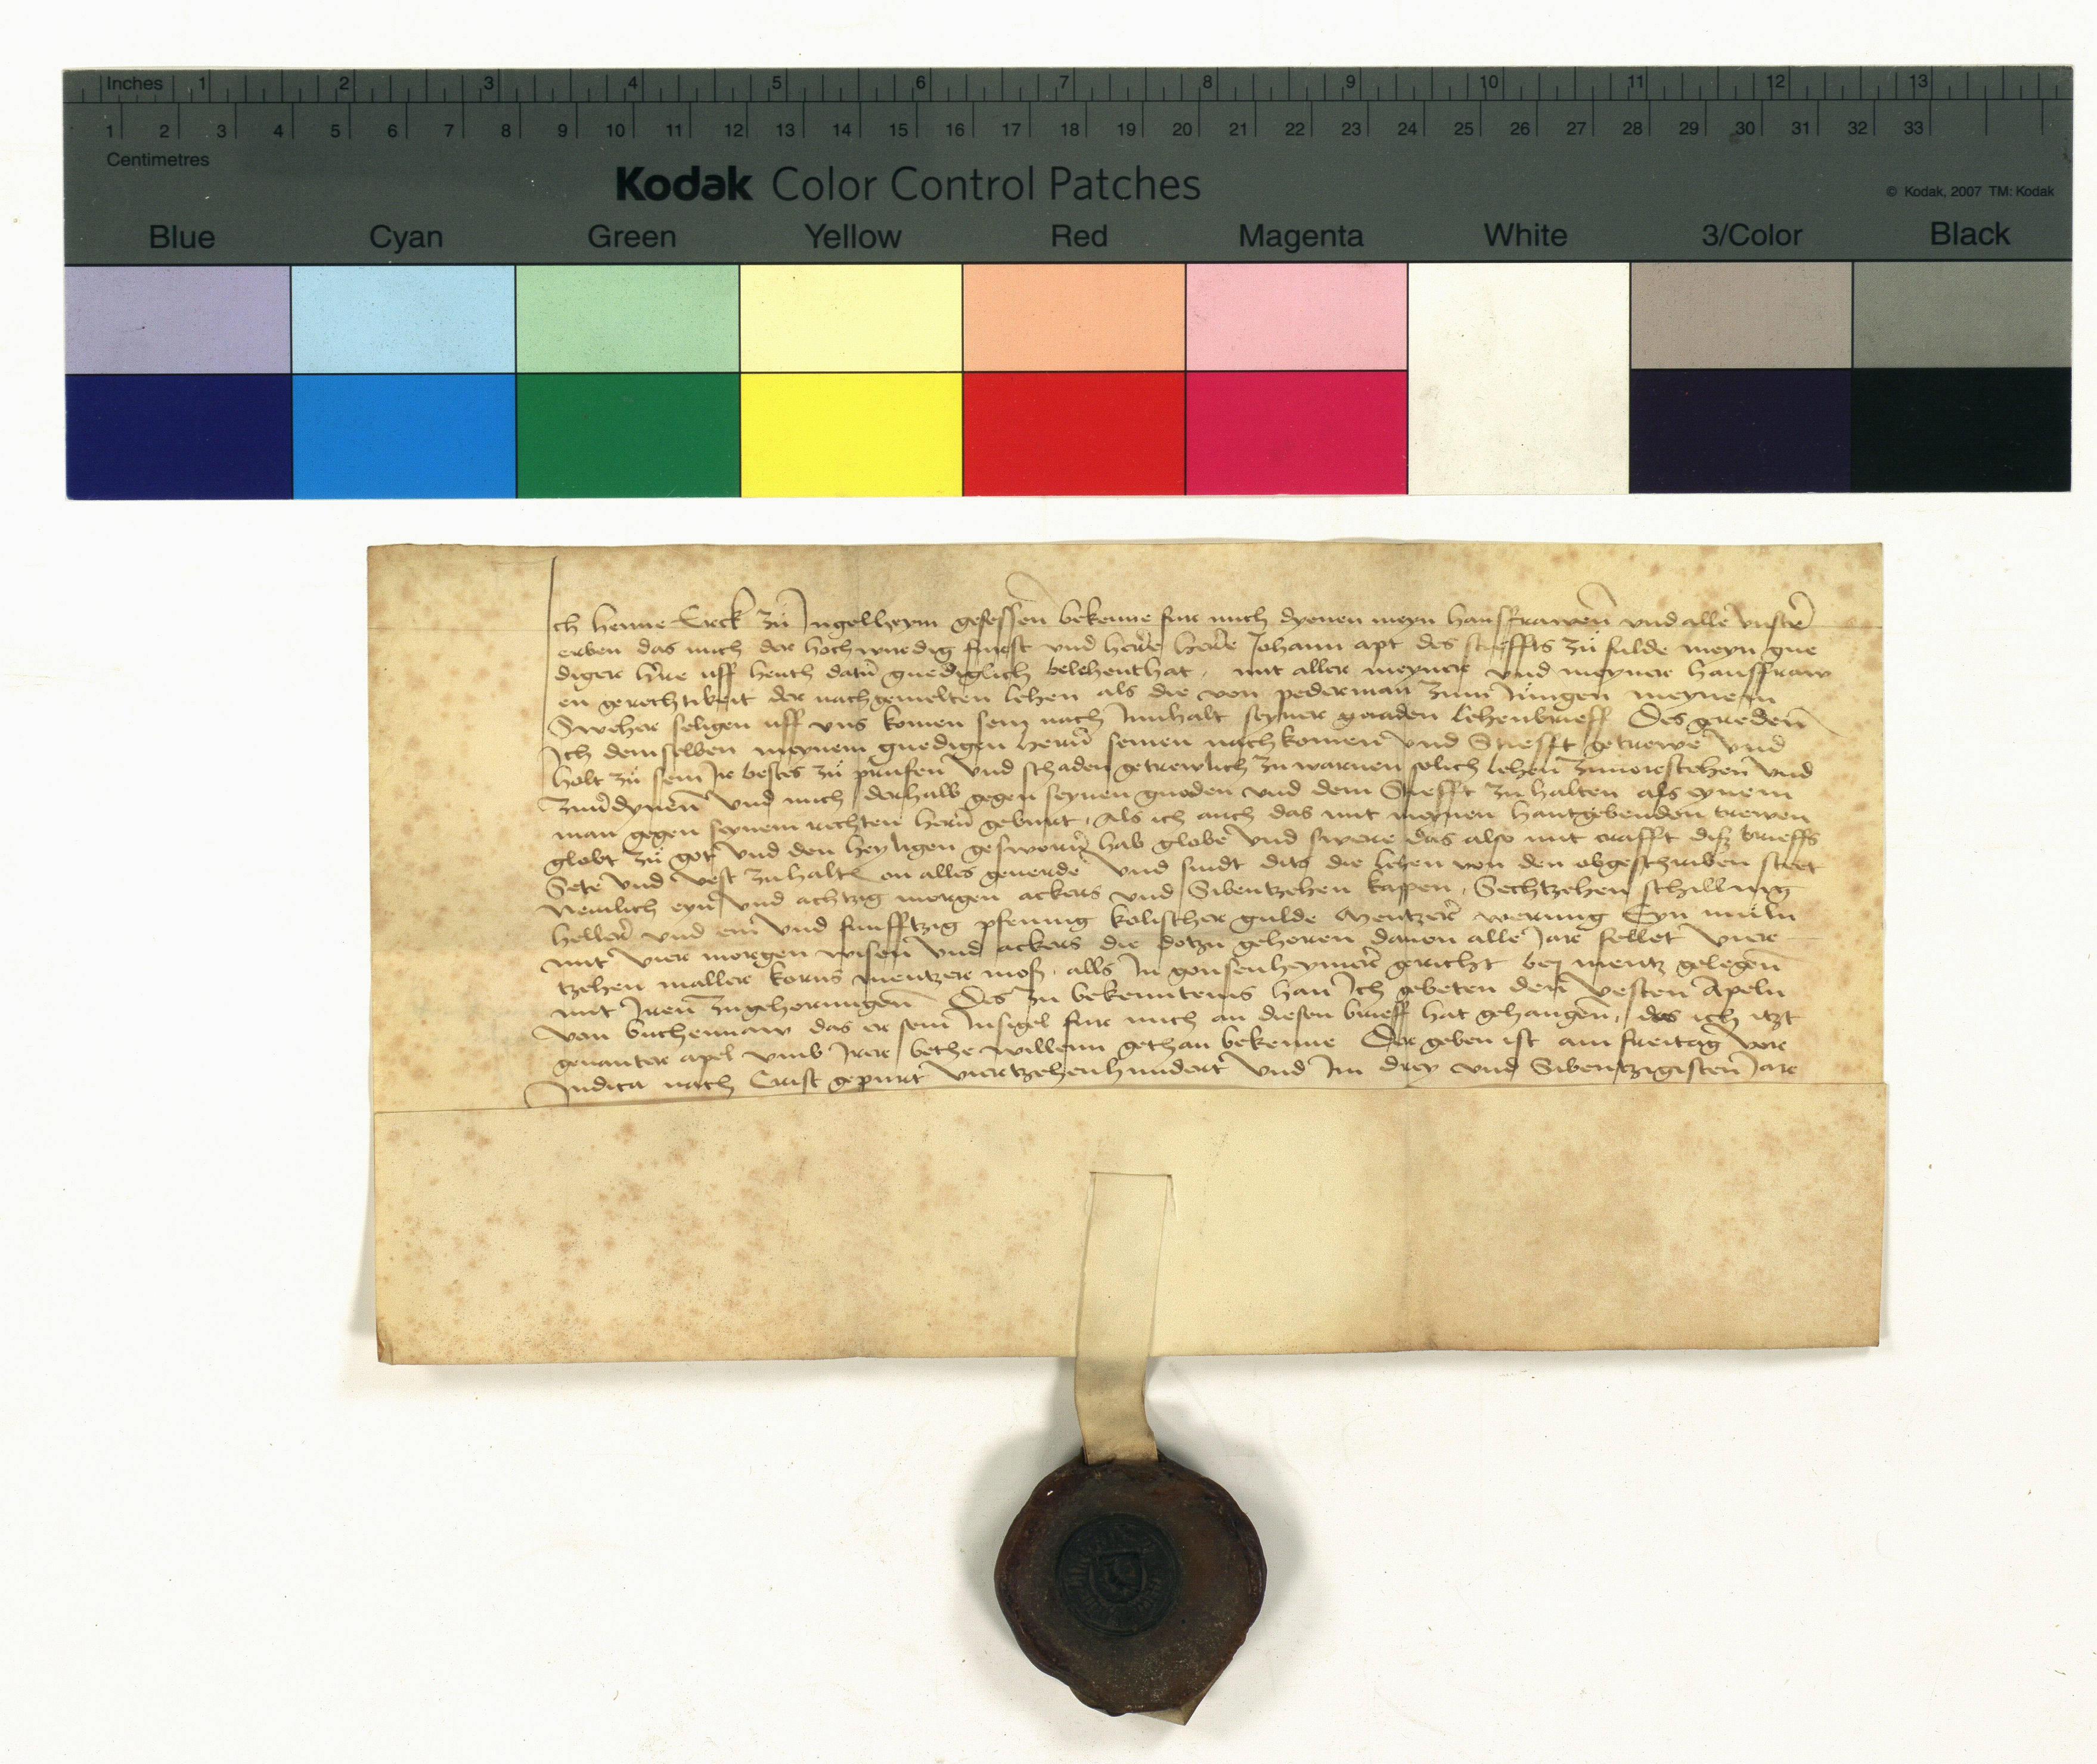 Inches 1 2 3 4 5 6 7 8 9 10 11 12 13
1 2 3 4 5 6 7 8 9 10 11 12 13 14 15 16 17 18 19 20 21 22 23 24 25 26 27 28 29 30 31 32 33
Centimetres
Kodak Color Control Patches
© Kodak, 2007 TM: Kodak
Blue Cyan Green Yellow Red Magenta White 3/Color Black
Ich Henne Erck zů Ingelheym gesessen bekenne fur mich dyenen meyn hausfrawen und alle unser
erben das mich der hochwurdig furst und herre herre Johann apt des stieffts zů fulde meyn gne
diger herre uff heuth datum gnediglich belehent hat, mit aller meyner und meyner hausfraw
en gerechtikeit der nachgemelten lehen als die von pederman zum Jungen meynem
Sweher seligen uff uns komen sein nach Innhalt seyner gnaden lehenbrieff Des gereden
Ich demselben meynem gnedigen hern seinen nachkomen und Stiefft getrewe und
holt zů sein Ir bestes zů prufen und schaden getrewlich zu warnen solich lehen zuvorstehen und
zuverdynen und mich derhalb gegen seynen gnoden und dem Stiefft zu halten als eynem
man gegen seynem rechten hern geburt, Als ich auch das mit meynen hantgebenden trewen
globt zů got und den heyligen gesworn hab globe und swere das also mit crafft diß brieffs
Stete und vest zuhalten on alles geuerde Und sindt dits die lehen von den obgeschriben steet
Nemlich eyn und achtzig morgen ackers und Sibentzehen kappen, Sechtzehen schilling
heller und ein und funfftzig pfennig kolischer gulde Mentzer werung Eyn muln
mit vier morgen wisen und ackers die dotzu gehoren dauon alle Jare fellet vier
tzehen malter korns mentzer moß, alls In gonsenheymer gericht bey mentz gelegen
mit Iren zugehorungen Des zu bekenntenis han Ich gebeten den vesten Apeln
von buchennaw das er sein Insigel fur mich an diesen brieff hat gehangen, des ich itzt
genanter apel umb Irer bethe willenn gethan bekenne Der geben ist am freitag vor
Judica nach Crist gepurt viertzehenhundert und Im drey und Sibentzigisten Jare